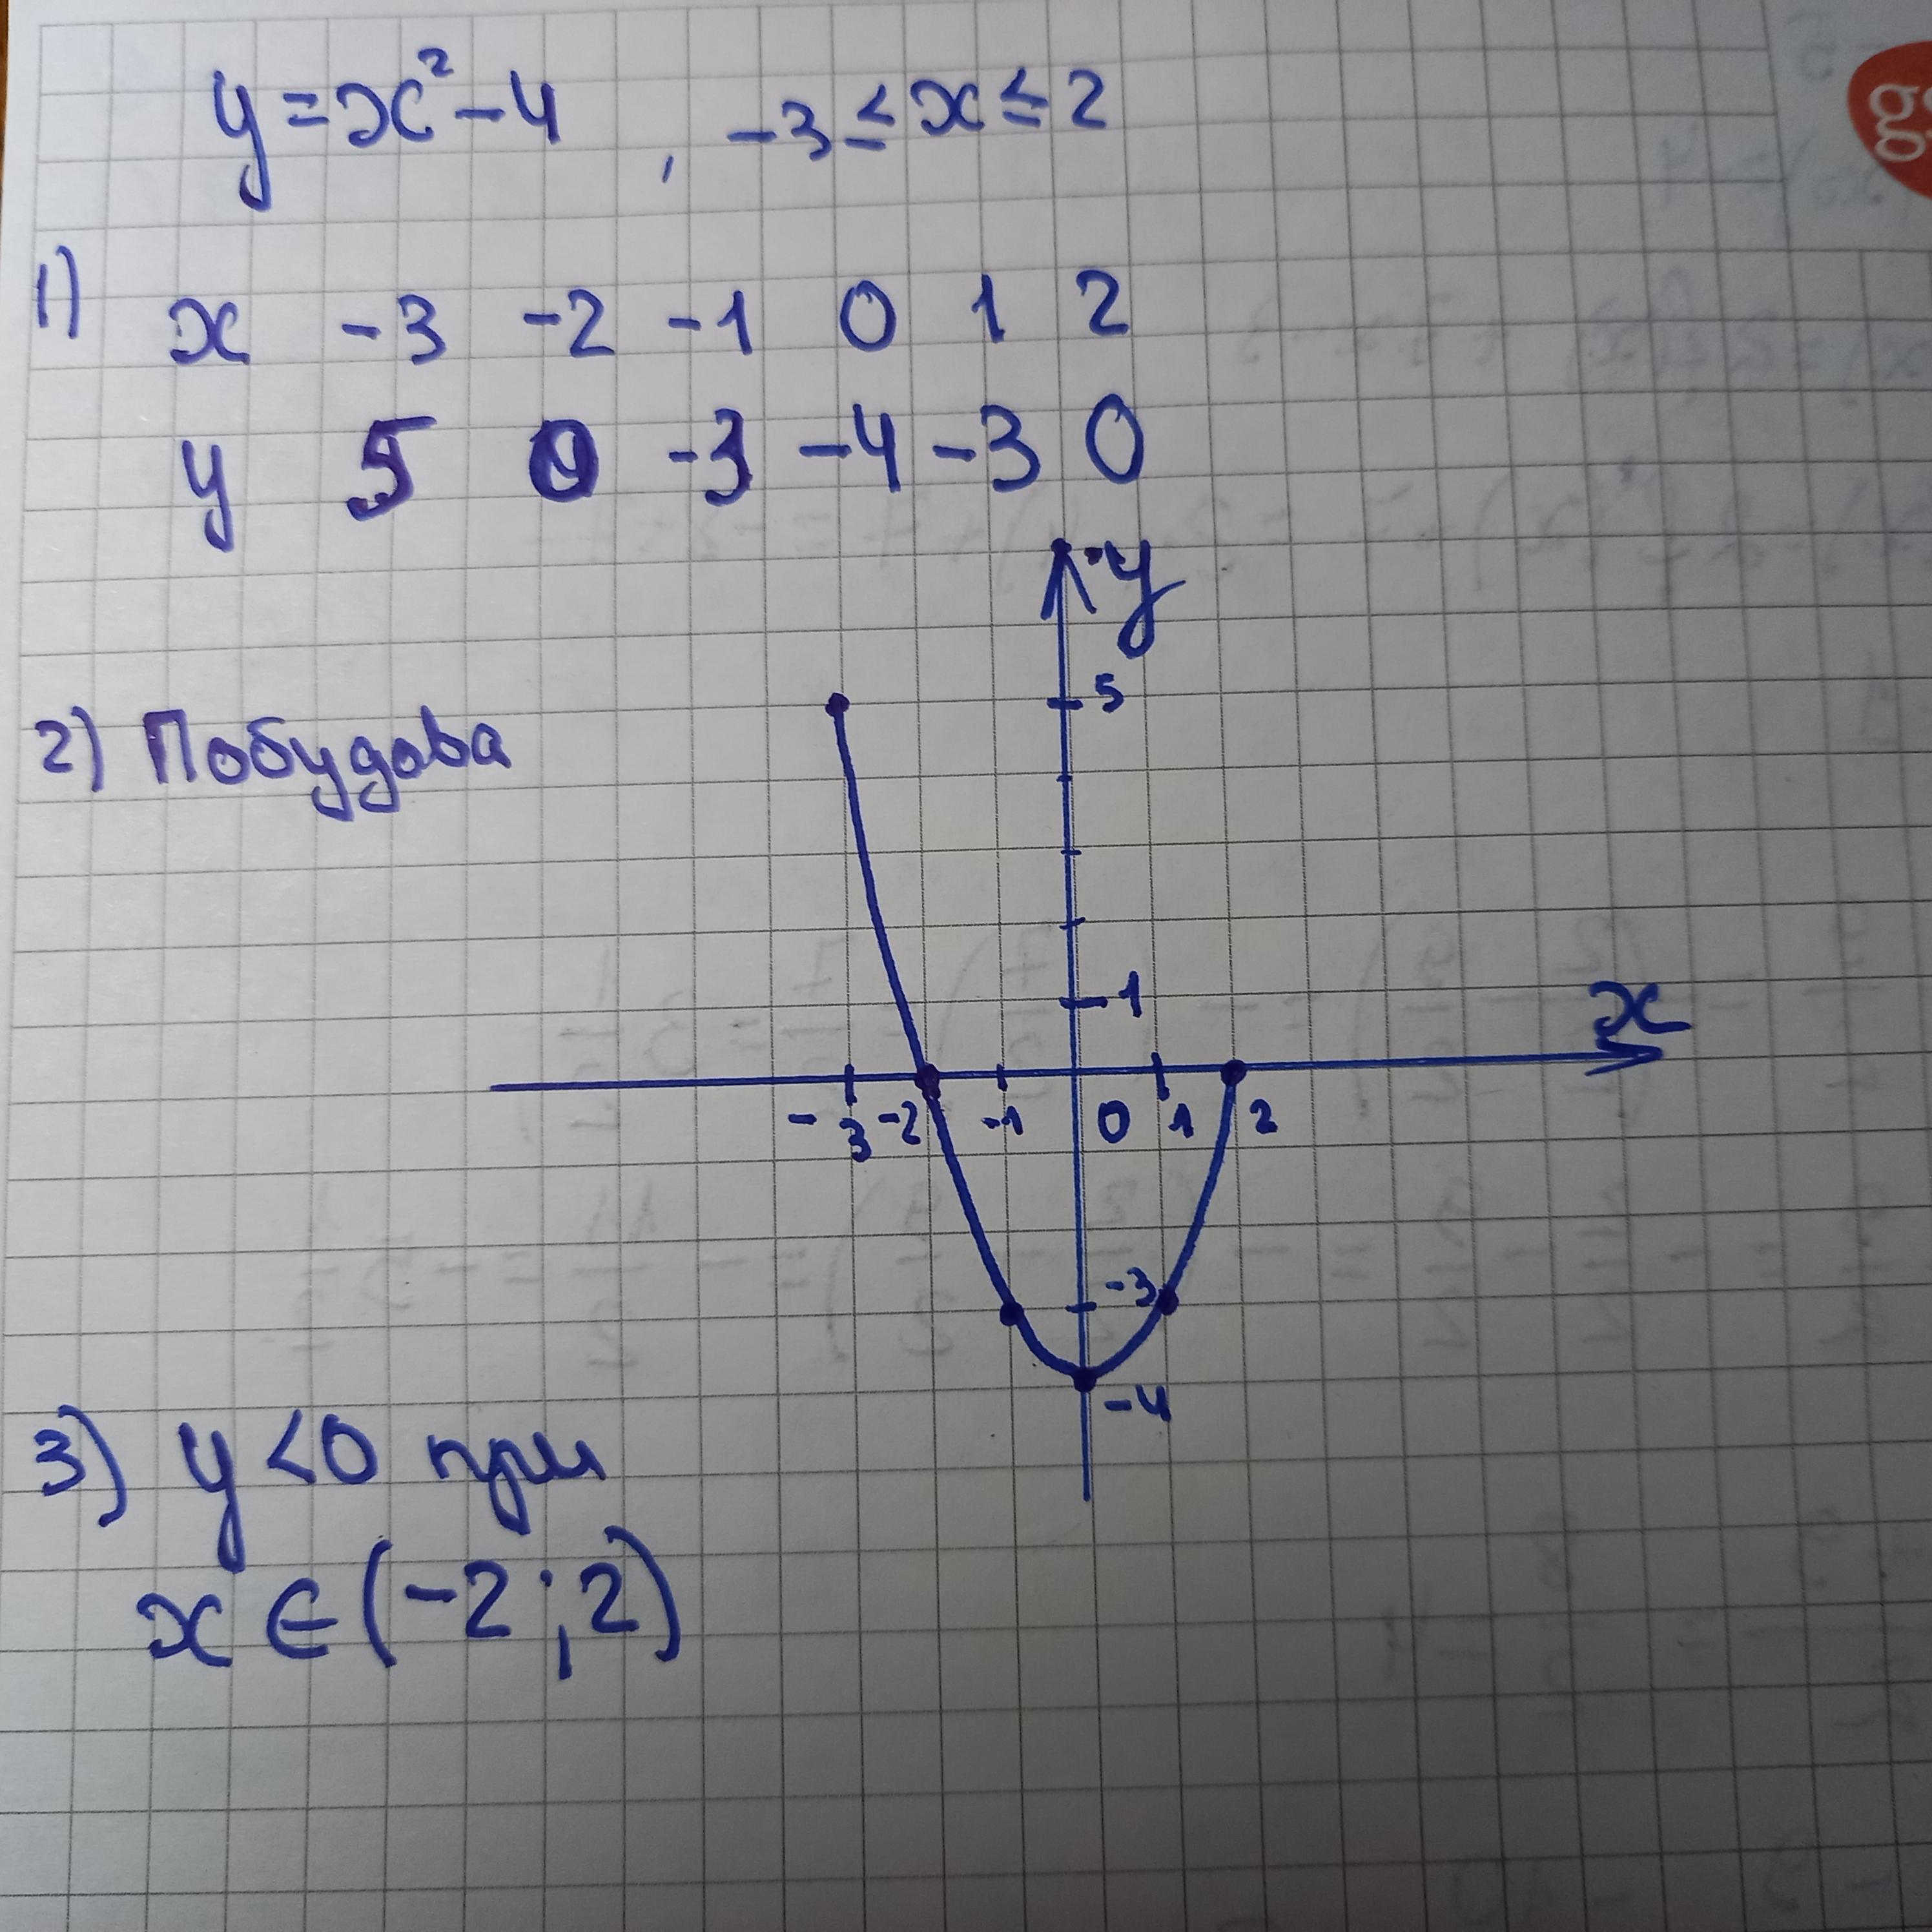 y = x² - 4 , -3 ≤ x ≤ 2
1) x -3 -2 -1 0 1 2
y 5 0 -3 -4 -3 0
y
5
2) Побудова
1
x
-3 -2 -1 0 1 2
-3
-4
3) y < 0 при
x ∈ (-2 ; 2)